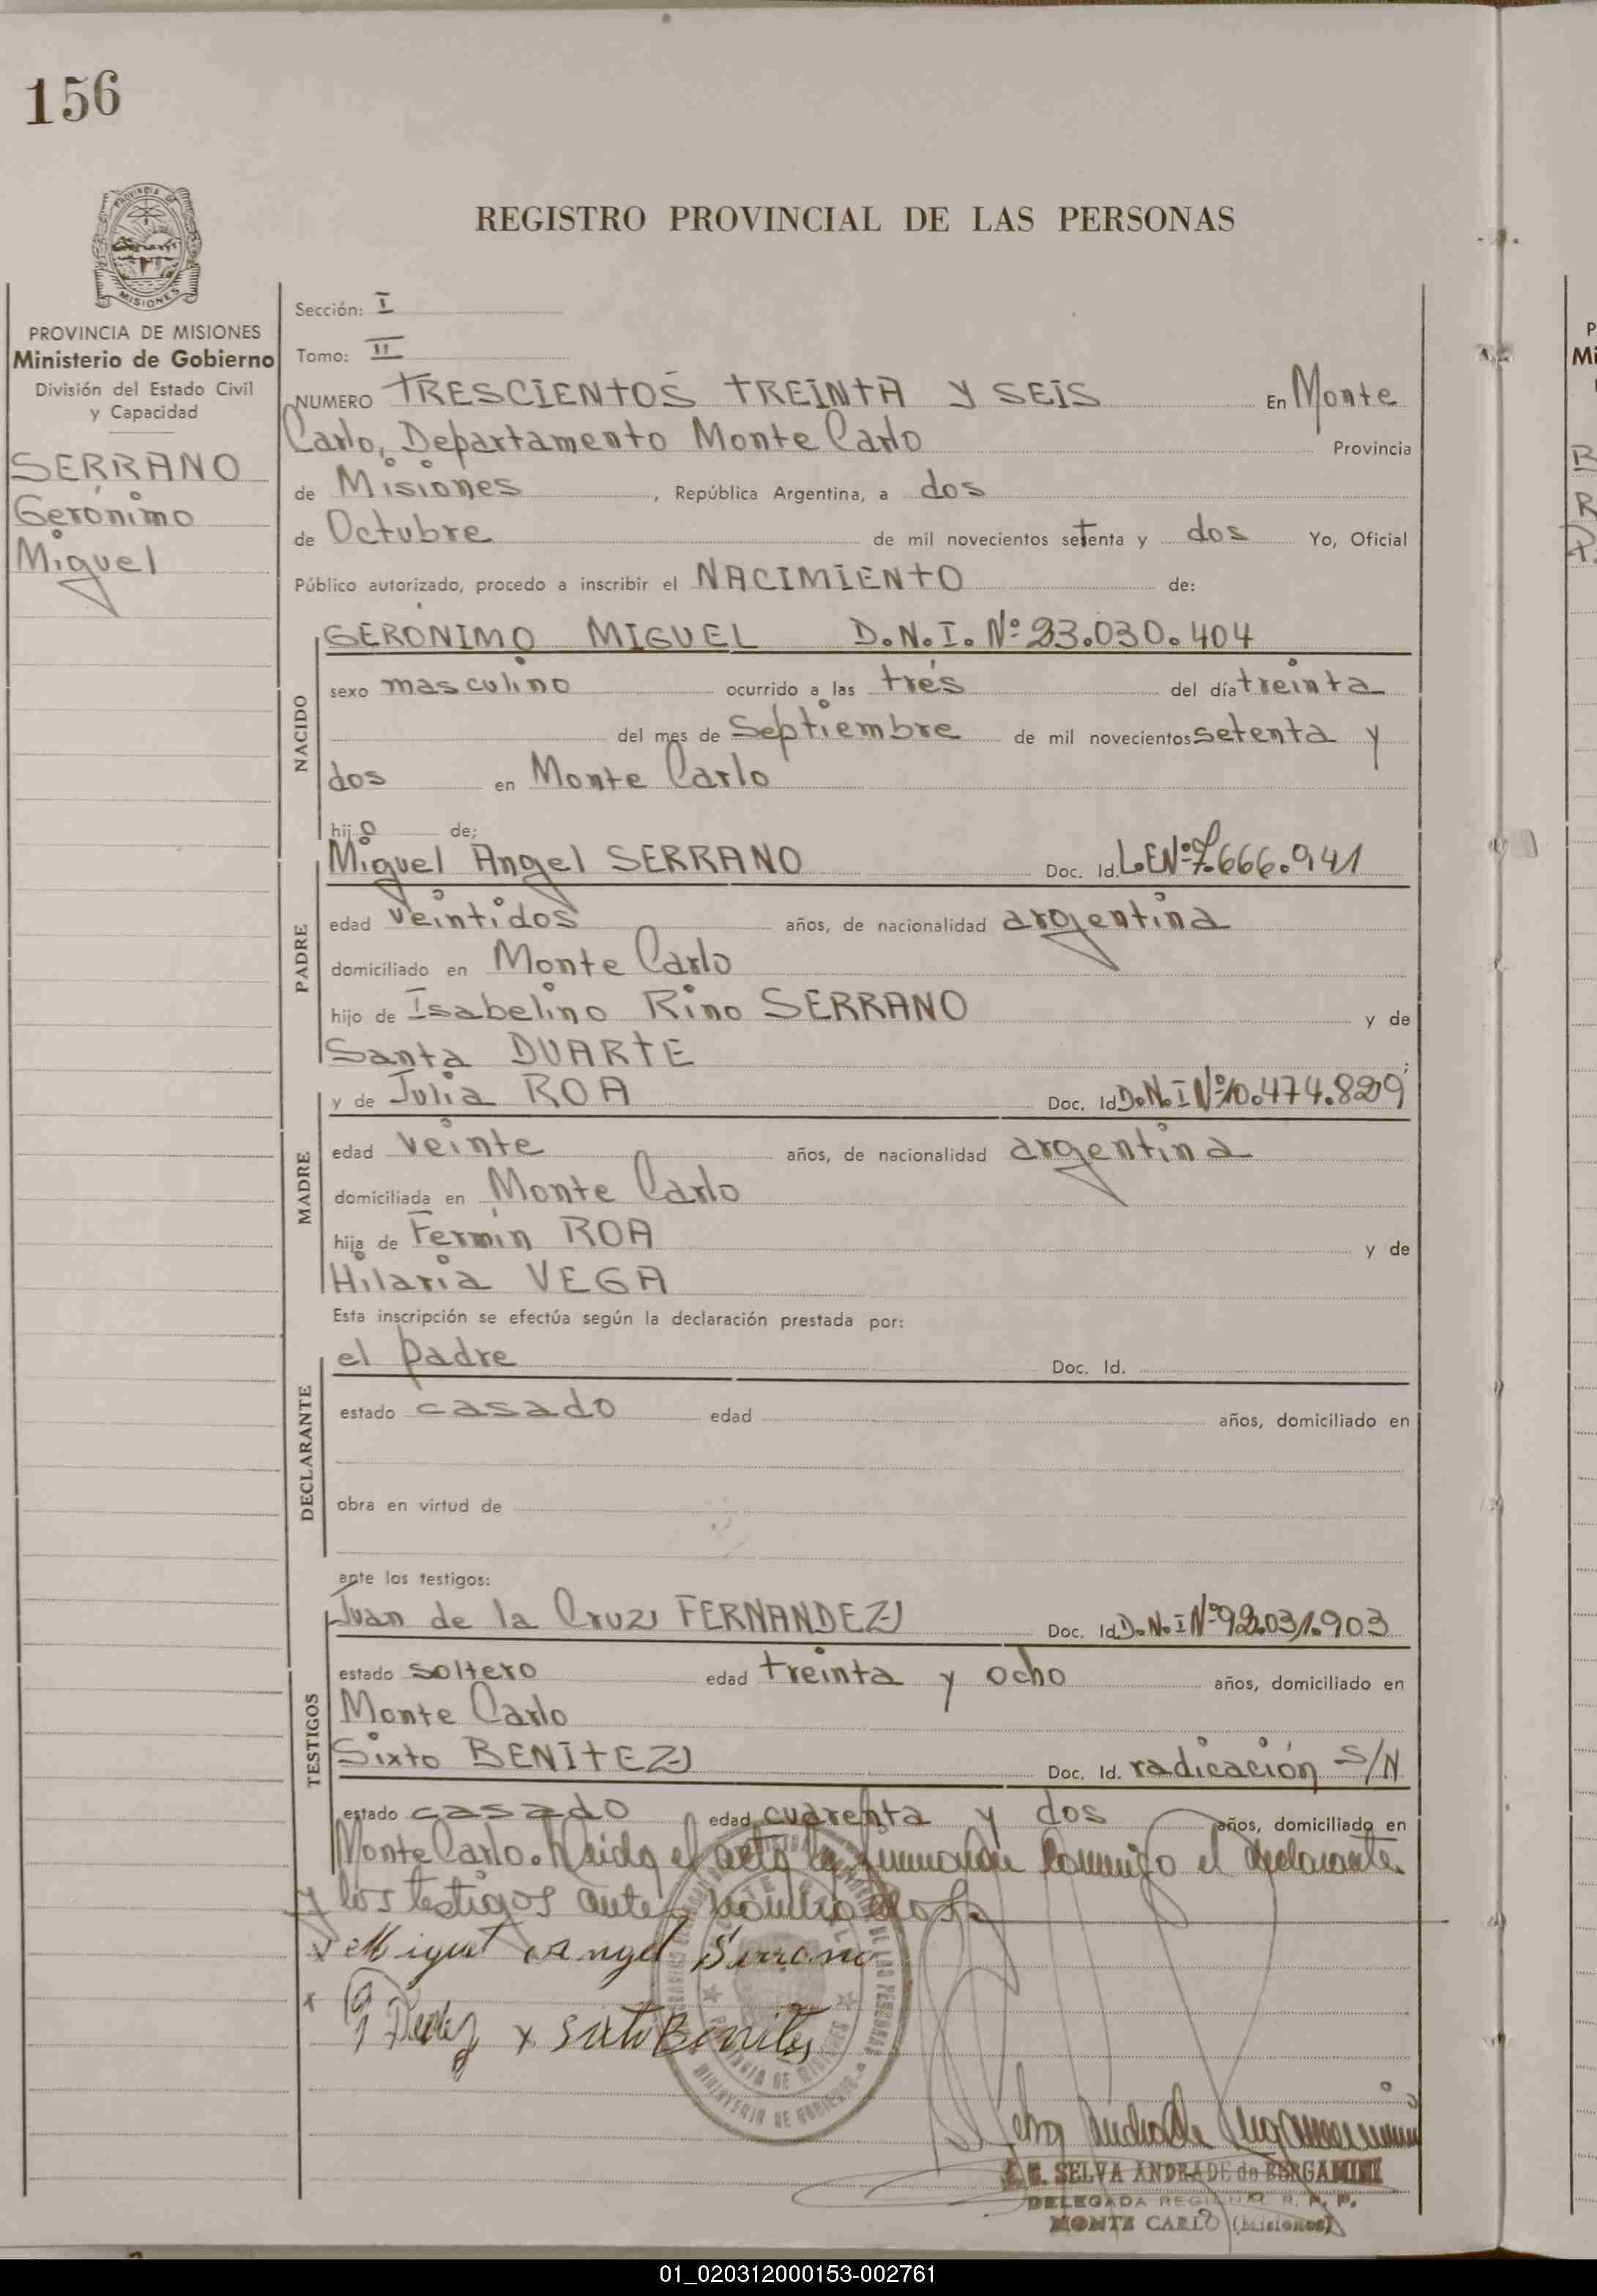 156
PROVINCIA DE MISIONES
Ministerio de Gobierno
División del Estado Civil
y Capacidad
SERRANO
Gerónimo
Miguel
REGISTRO PROVINCIAL DE LAS PERSONAS
Sección: I
Tomo: II
NUMERO TRESCIENTOS TREINTA Y SEIS En Monte
Carlo, Departamento Monte Carlo Provincia
de Misiones, República Argentina, a dos
de Octubre de mil novecientos setenta y dos Yo, Oficial
Público autorizado, procedo a inscribir el NACIMIENTO de:
NACIDO
GERONIMO MIGUEL D.N.I. Nº 23.030.404
sexo masculino ocurrido a las tres del día treinta
del mes de Septiembre de mil novecientos setenta y
dos en Monte Carlo
hijo de;
PADRE
Miguel Angel SERRANO Doc. Id. L.E Nº 7.666.941
edad veintidos años, de nacionalidad argentina
domiciliado en Monte Carlo
hijo de Isabelino Rino SERRANO y de
Santa DUARTE
MADRE
y de Julia ROA Doc. Id D.N.I Nº 10.474.829
edad veinte años, de nacionalidad argentina
domiciliada en Monte Carlo
hija de Fermin ROA y de
Hilaria VEGA
Esta inscripción se efectúa según la declaración prestada por:
DECLARANTE
el padre Doc. Id.
estado casado edad años, domiciliado en
obra en virtud de
ante los testigos:
TESTIGOS
Juan de la Cruz FERNANDEZ Doc. Id D.N.I Nº 92.031.903
estado soltero edad treinta y ocho años, domiciliado en
Monte Carlo
Sixto BENITEZ Doc. Id. radicación S/N
estado casado edad cuarenta y dos años, domiciliado en
Monte Carlo. Leida el acta la firman conmigo el declarante
y los testigos antes nombrados.
x Miguel Angel Serrano
x
x Sixto Benitez
SELVA ANDRADE de BERGAMINI
DELEGADA REGIONAL R. P. P.
MONTE CARLO (Misiones)
01_020312000153-002761